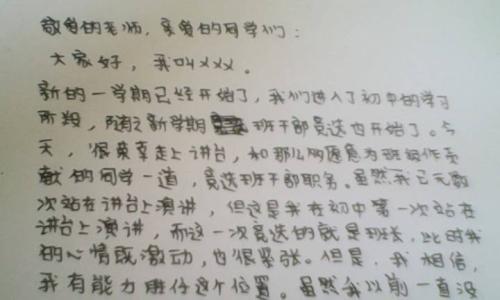 敬爱的老师，亲爱的同学们：
大家好，我叫XXX。
新的一学期已经开始了，我们进入了初中的学习
阶段，随之新学期班干部竞选也开始了。今
天，很荣幸走上讲台，和那么多愿意为班级作贡
献的同学一道，竞选班干部职务。虽然我已无数
次站在讲台上演讲，但这是我在初中第一次站在
讲台上演讲，而这一次竞选的就是班长，此时我
的心情既激动，也很紧张。但是，我相信，
我有能力胜任这个位置。虽然我以前一直没